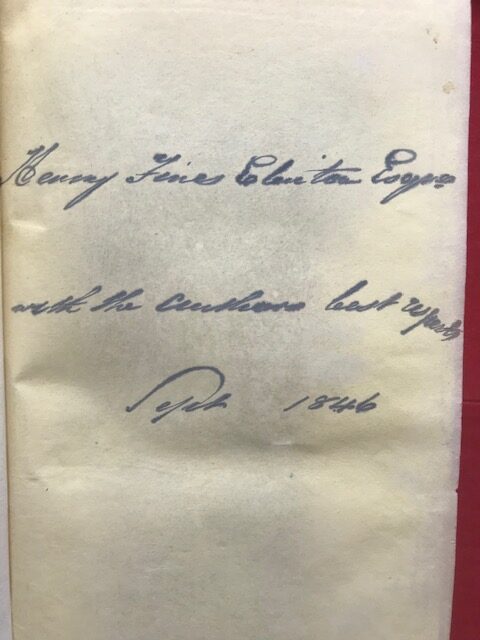 Henry Fines Clinton Esqre
with the authors best regards
Sept 1846